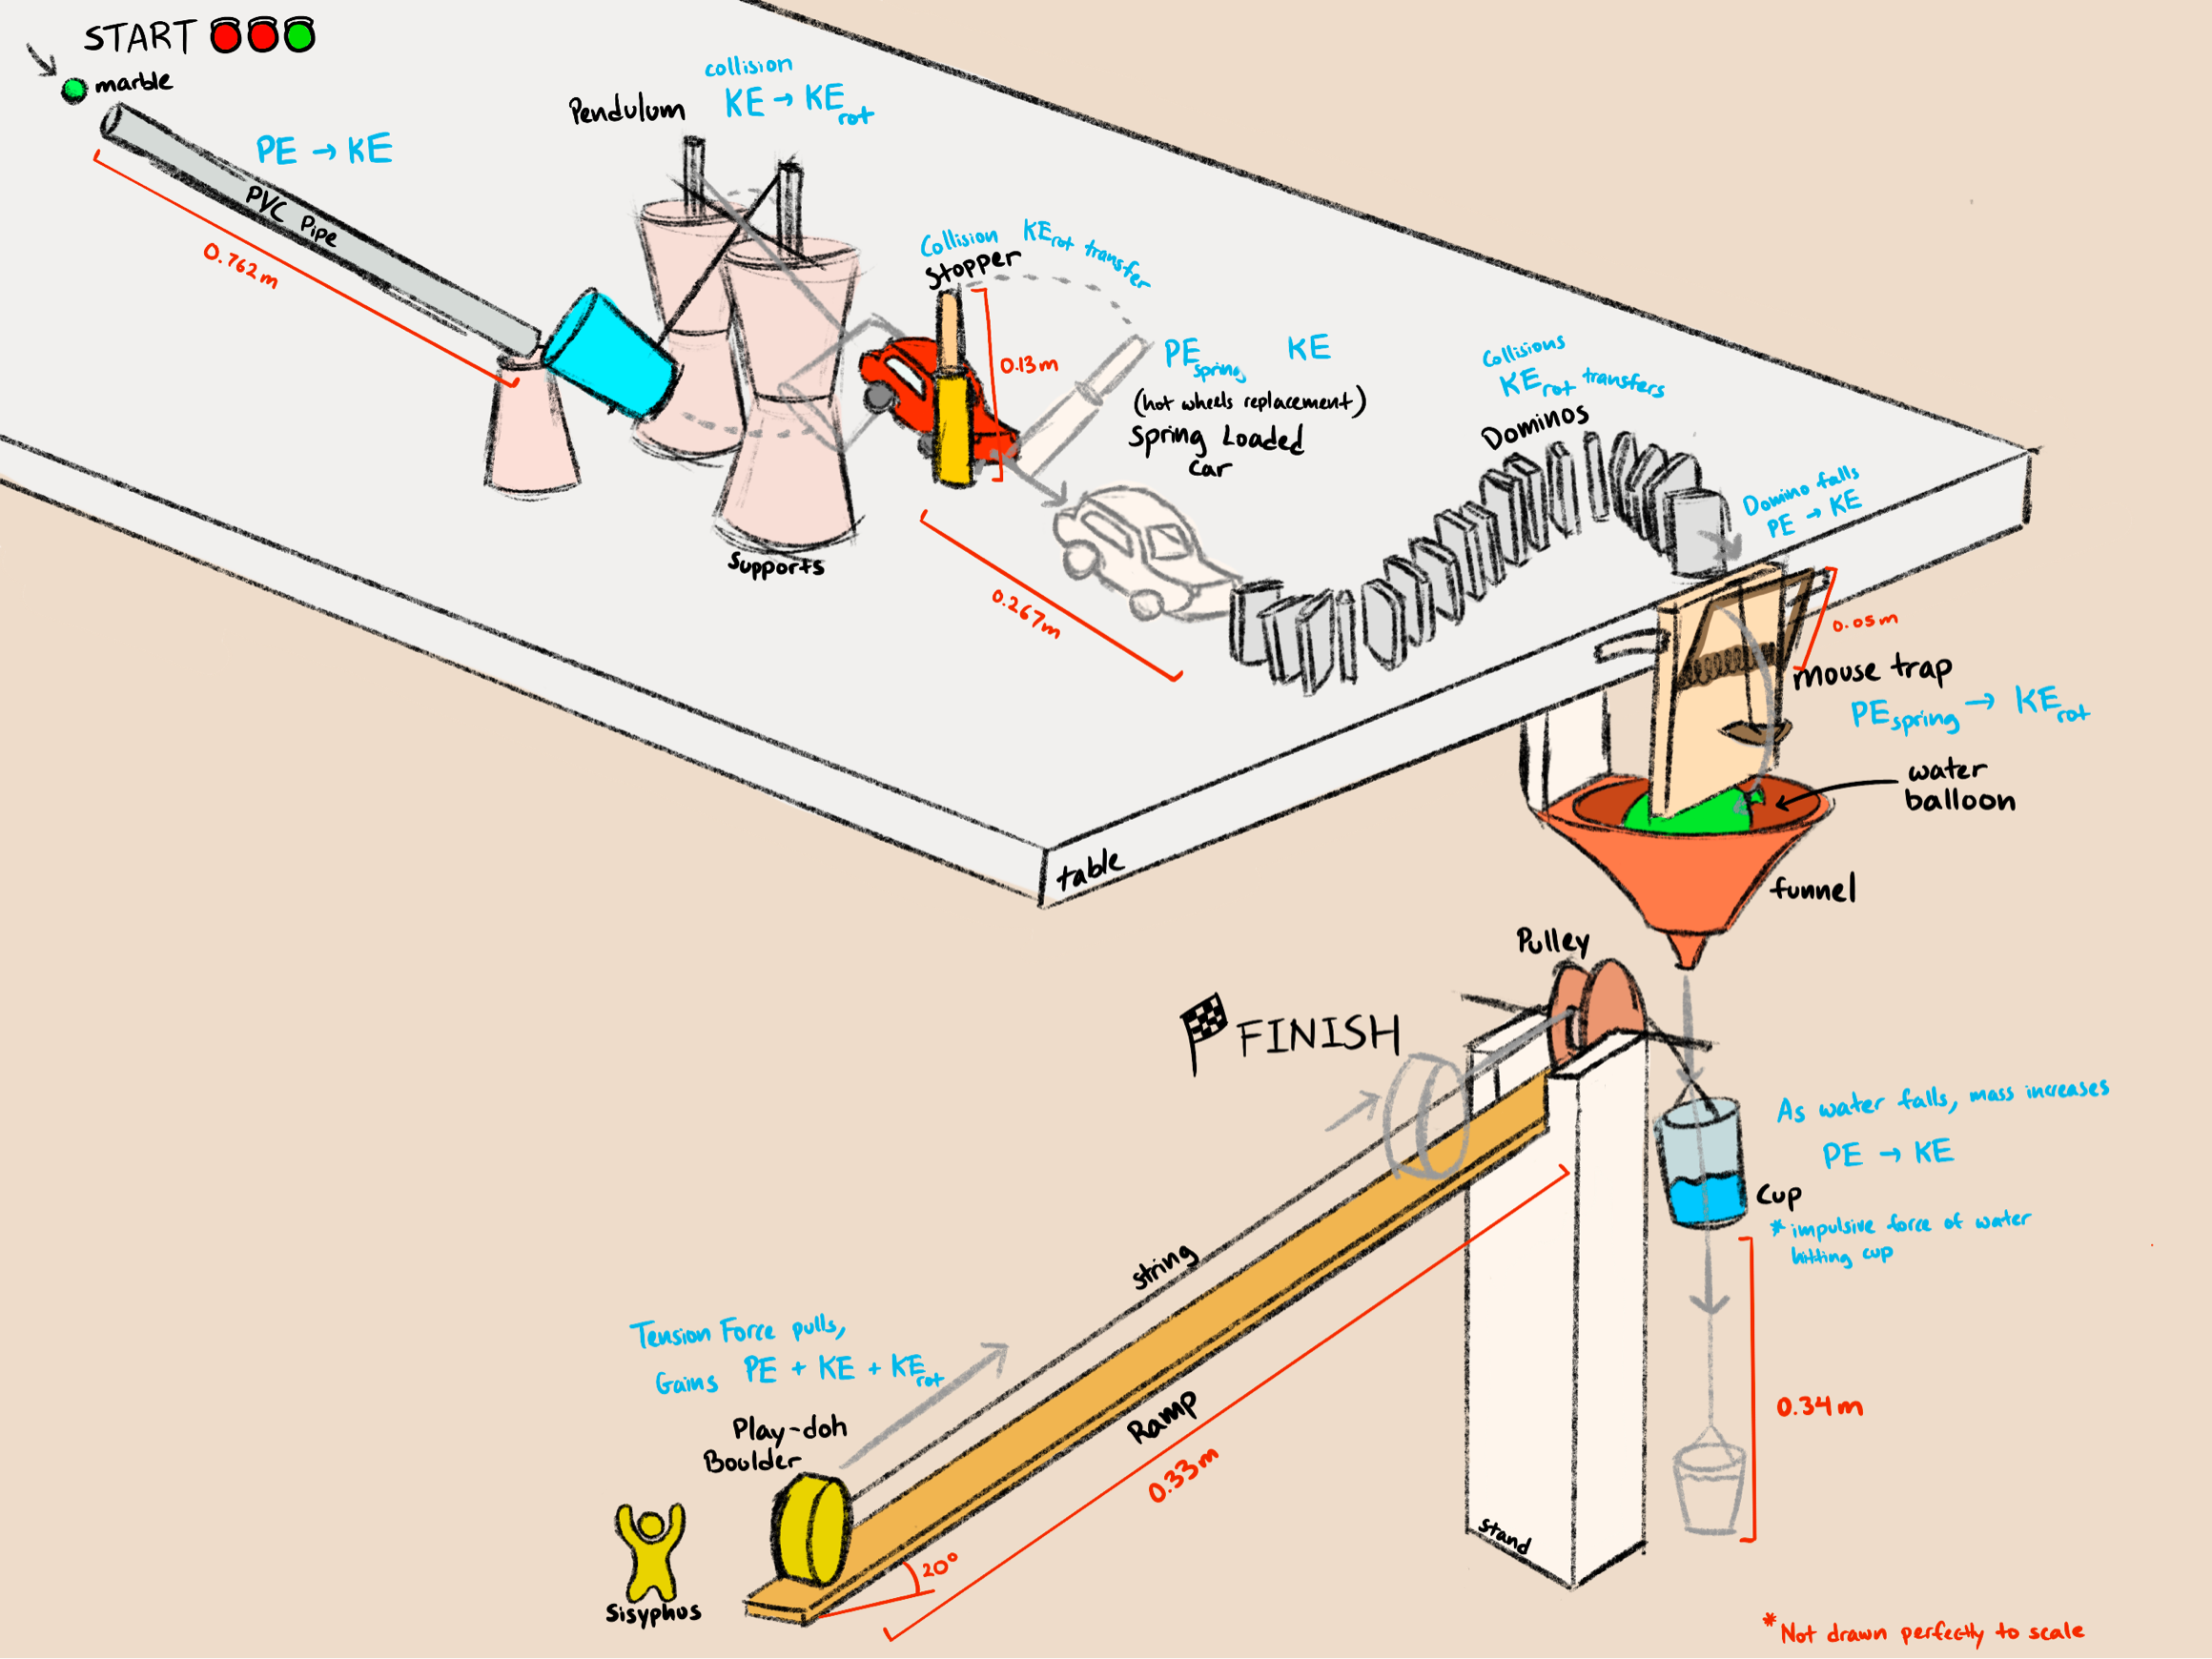 START
marble
PE → KE
PVC Pipe
0.762m
Pendulum
collision
KE → KE rot
Supports
Collision KE rot transfer
Stopper
0.13m
PE spring KE
(hot wheels replacement)
Spring Loaded
car
0.267m
Collisions
KE rot transfers
Dominos
Domino falls
PE → KE
0.05m
mouse trap
PE spring → KE rot
water
balloon
table
funnel
Pulley
FINISH
As water falls, mass increases
PE → KE
Cup
* impulsive force of water
hitting cup
string
Tension Force pulls,
Gains PE + KE + KE rot
Play-doh
Boulder
Ramp
0.33m
0.34m
20°
stand
Sisyphus
*Not drawn perfectly to scale